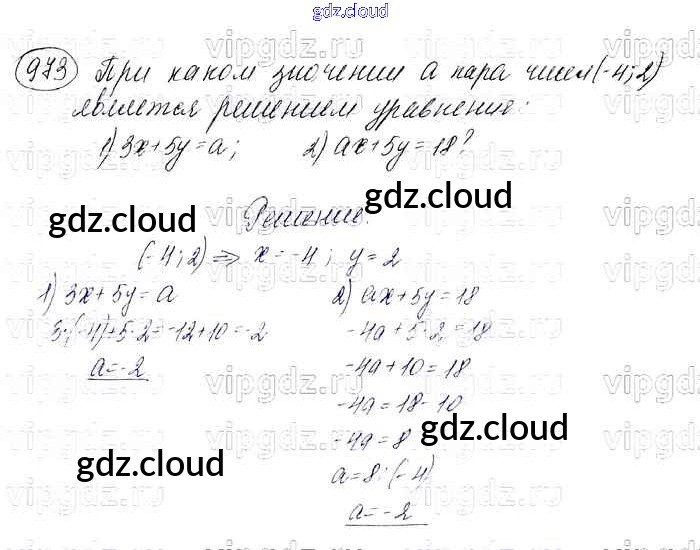 gdz.cloud
973 При каком значении a пара чисел (-4;2)
является решением уравнения:
1) 3x+5y=a; 2) ax+5y=18?
Решение.
(-4;2) ⇒ x=-4; y=2
1) 3x+5y=a
3·(-4)+5·2=-12+10=-2
a=-2
2) ax+5y=18
-4a+5·2=18
-4a+10=18
-4a=18-10
-4a=8
a=8:(-4)
a=-2
gdz.cloud
gdz.cloud
gdz.cloud
gdz.cloud
vipgdz.ru